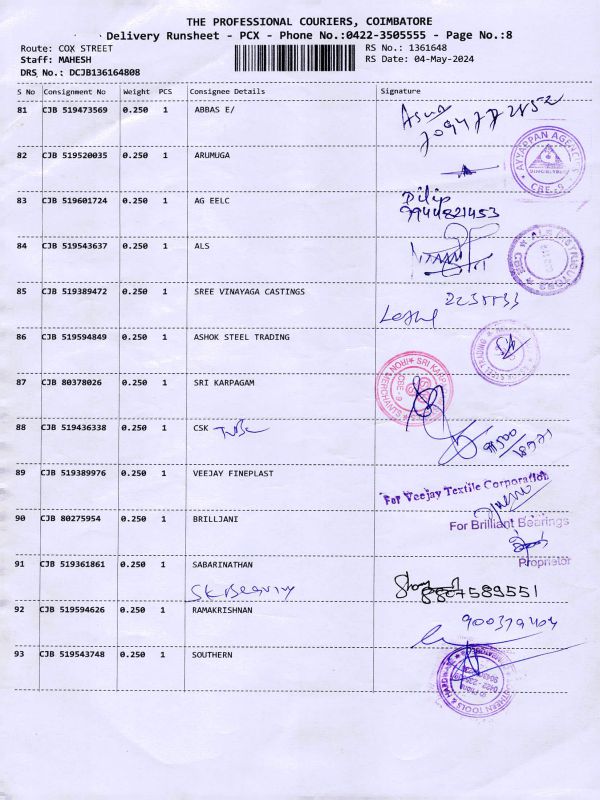 THE PROFESSIONAL COURIERS, COIMBATORE
Delivery Runsheet - PCX - Phone No.:0422-3505555 - Page No.:8
Route: COX STREET RS No.: 1361648
Staff: MAHESH RS Date: 04-May-2024
DRS No.: DCJB136164808
S No Consignment No Weight PCS Consignee Details Signature
81 CJB 519473569 0.250 1 ABBAS E/
82 CJB 519520035 0.250 1 ARUMUGA
AYYAPPAN AGENCIES
CBE-9
83 CJB 519601724 0.250 1 AG EELC Dilip
9944821453
84 CJB 519543637 0.250 1 ALS
85 CJB 519389472 0.250 1 SREE VINAYAGA CASTINGS
86 CJB 519594849 0.250 1 ASHOK STEEL TRADING
87 CJB 80378026 0.250 1 SRI KARPAGAM
SRI KARPAGAM IRON MERCHANTS
CBE - 9
88 CJB 519436338 0.250 1 CSK
89 CJB 519389976 0.250 1 VEEJAY FINEPLAST
For Veejay Textile Corporation
90 CJB 80275954 0.250 1 BRILLJANI
For Brilliant Bearings
Proprietor
91 CJB 519361861 0.250 1 SABARINATHAN
8807589551
92 CJB 519594626 0.250 1 RAMAKRISHNAN
93 CJB 519543748 0.250 1 SOUTHERN